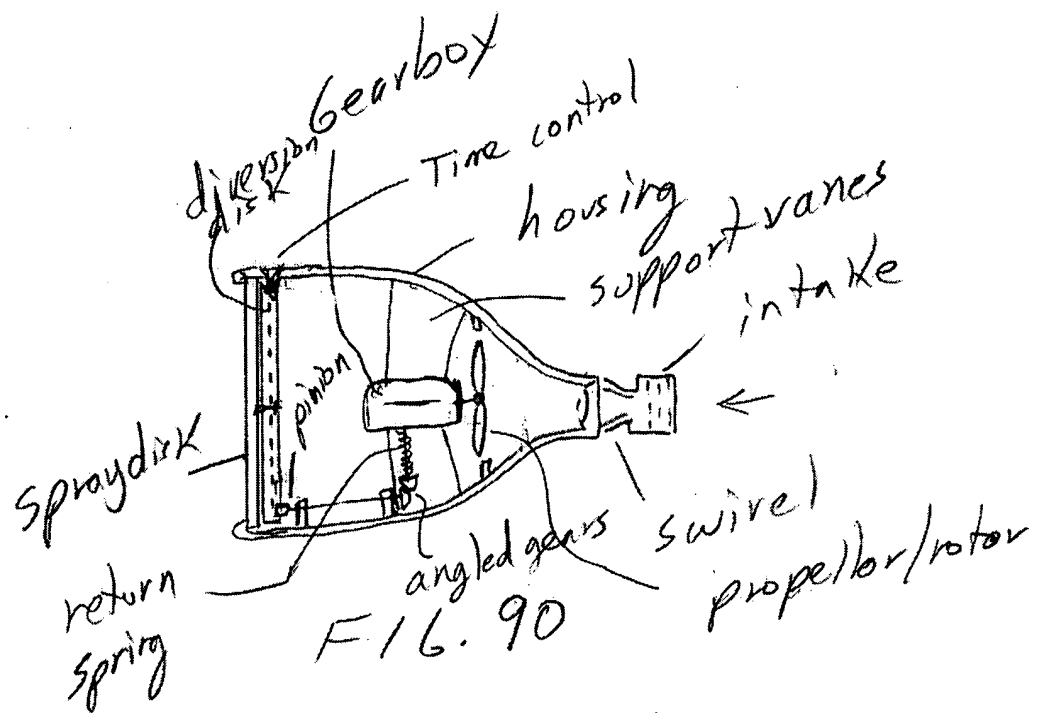 Gearbox
diversion
disk
Time control
housing
support vanes
intake
pinion
spraydisk
return
spring
angled gears
swivel
propellor/rotor
FIG. 90